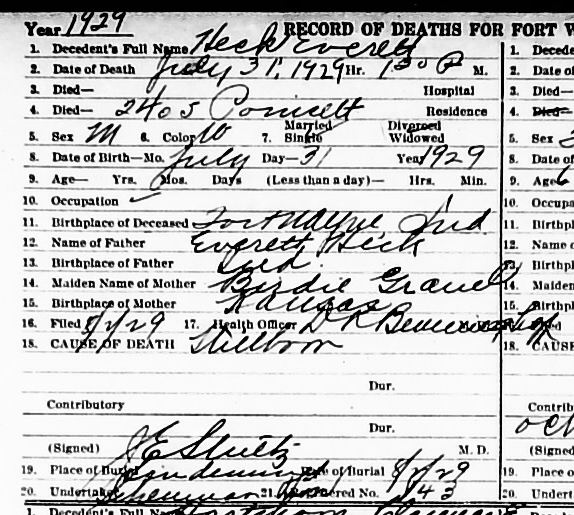 Year 1929 RECORD OF DEATHS FOR FORT W
1. Decedent's Full Name Heck Everett
2. Date of Death July 31, 1929 Hr. 1:30 P M.
3. Died— Hospital
4. Died— 2405 Residence
5. Sex M 6. Color W 7. Married Single Divorced Widowed
8. Date of Birth—Mo. July Day— 31 Year 1929
9. Age— Yrs. Mos. Days (Less than a day)— Hrs. Min.
10. Occupation ✓
11. Birthplace of Deceased Fort Wayne Ind
12. Name of Father Everett Heck
13. Birthplace of Father Ind.
14. Maiden Name of Mother Birdie
15. Birthplace of Mother Kansas
16. Filed 8/2/29 17. Health Officer D R
18. CAUSE OF DEATH Stillborn
Dur.
Contributory
Dur.
(Signed) J E Stultz M. D.
19. Place of Burial Lindenwood Date of Burial 8/2/29
20. Undertaker 21. Numbered No. 43
1. Decedent's Full Name
1. Decede
2. Date of
3. Died—
4. Died—
5. Sex
8. Date of
9. Age
10. Occupa
11. Birthpl
12. Name o
13. Birthpl
14. Maiden
15. Birthpl
18. CAUSE
Contrib
(Signed
19. Place o
20. Undert